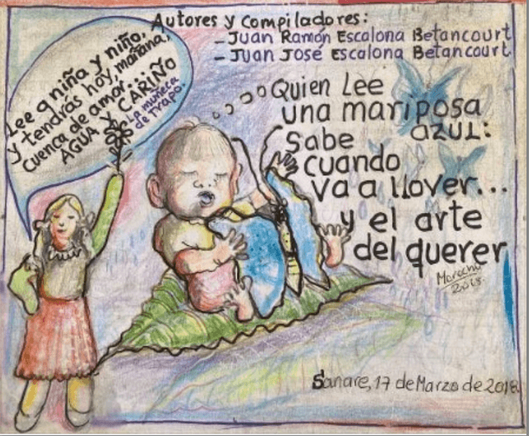 Autores y Compiladores:
- Juan Ramón Escalona Betancourt
- Juan José Escalona Betancourt
Lee a niña y niño,
y tendrás hoy, mañana,
cuenca de amor...
AGUA Y CARIÑO
La muñeca
de trapo.
Quien Lee
una mariposa
azul:
Sabe
cuando
va a llover...
y el arte
del querer
2018
Sanare, 17 de Marzo de 2018